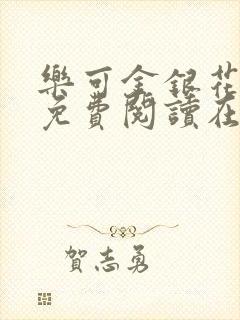 樂可金銀花
免費閱讀在
賀志勇